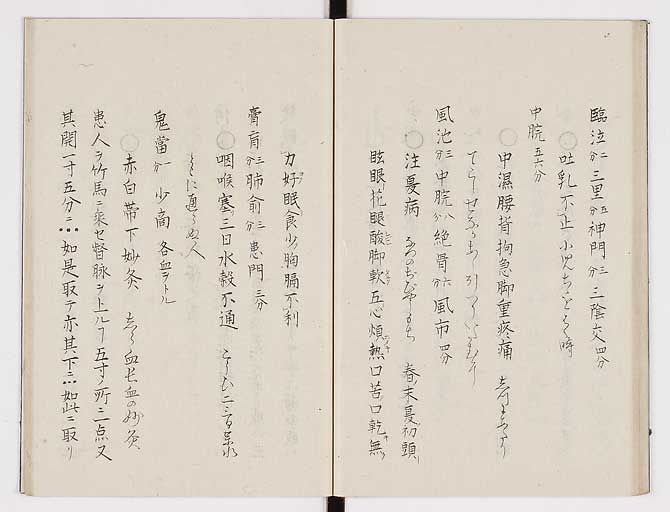 臨泣分二三里分五神門分三三陰交四分
〇吐乳不止小児ちをはく時
中脘五六分
〇中濕腰背拘急脚重疼痛
風池分三中脘分八絶骨分六風市四分
〇注夏病 春末夏初頭
眩眼花腿酸脚軟五心煩熱口苦口乾無
力好眠食少胸膈不利
膏肓分三肺俞分三患門三分
〇咽喉塞三日水穀不通
のとに通らぬ人
鬼當分一少商各血ヲトル
〇赤白帯下妙灸 しら血長血の妙灸
患人ヲ竹馬ニ乗セ督脉ヲ上ルヿ五寸ノ所ニ点又
其開一寸五分ニ如是取テ亦其下ニ如此ニ取リ